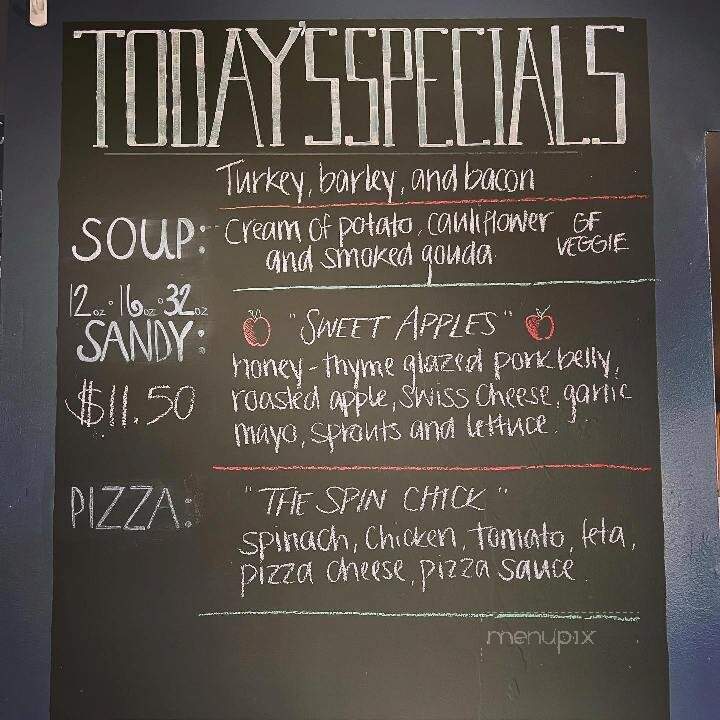 TODAY'S SPECIALS
Turkey, barley, and bacon
SOUP:
Cream of potato, cauliflower
and smoked gouda
GF
VEGGIE
12oz · 16oz · 32oz
SANDY:
$11.50
"SWEET APPLES"
honey-thyme glazed pork belly,
roasted apple, Swiss Cheese, garlic
mayo, sprouts and lettuce
PIZZA:
"THE SPIN CHICK"
spinach, Chicken, Tomato, feta,
pizza cheese, pizza sauce
menupix